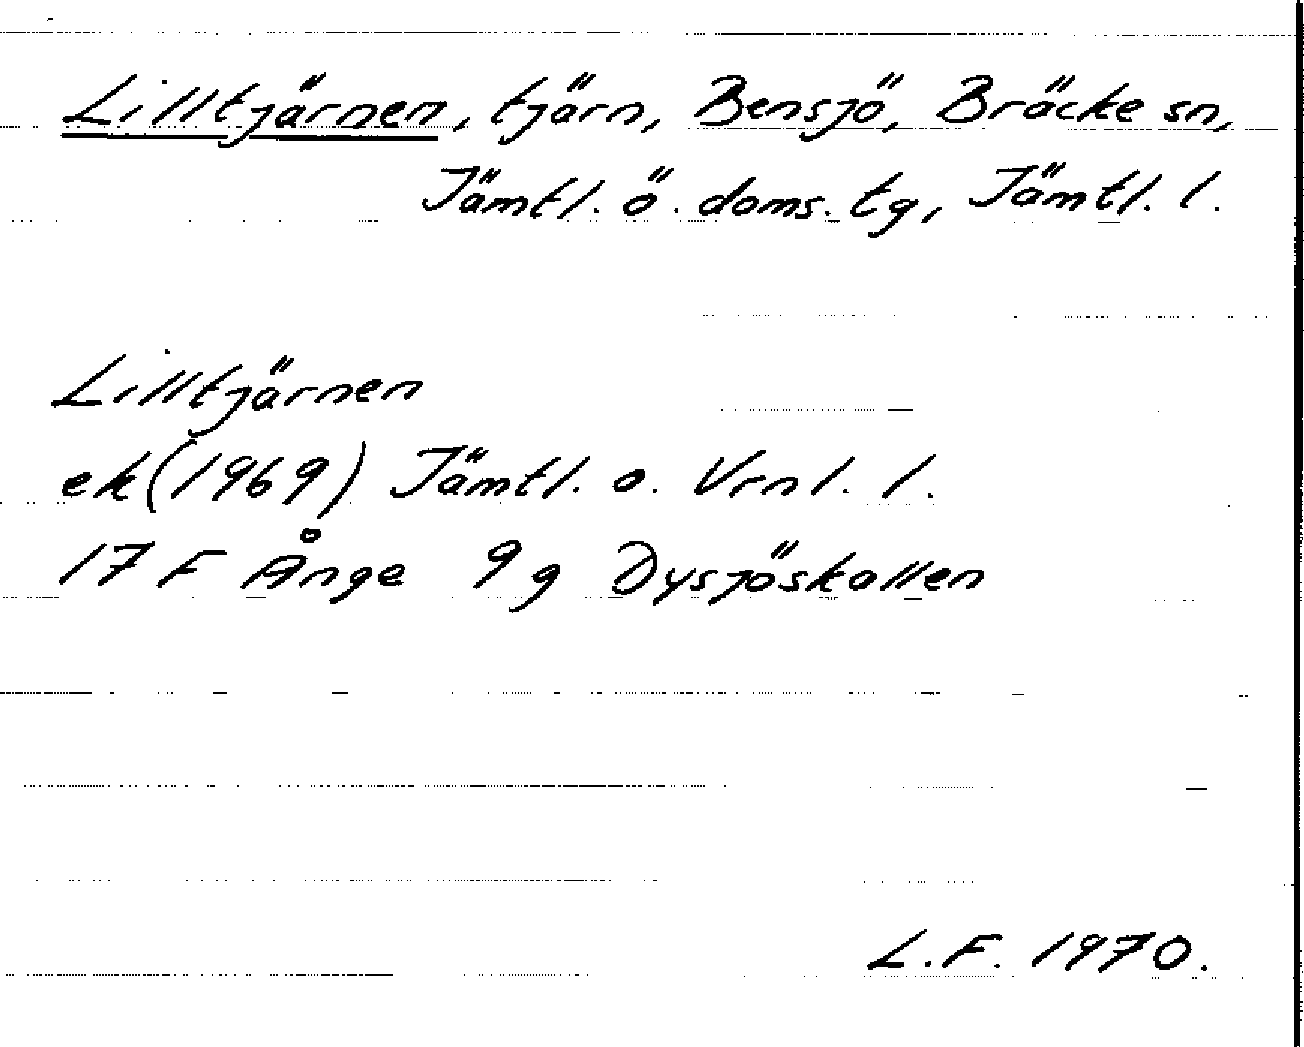 Lilltjärnen, tjärn, Bensjö, Bräcke sn,
Jämtl. ö. doms. tg, Jämtl. l.
Lilltjärnen
ek (1969) Jämtl. o. Vrnl. l.
17 F Ånge 9 g Dysjöskallen
L.F. 1970.